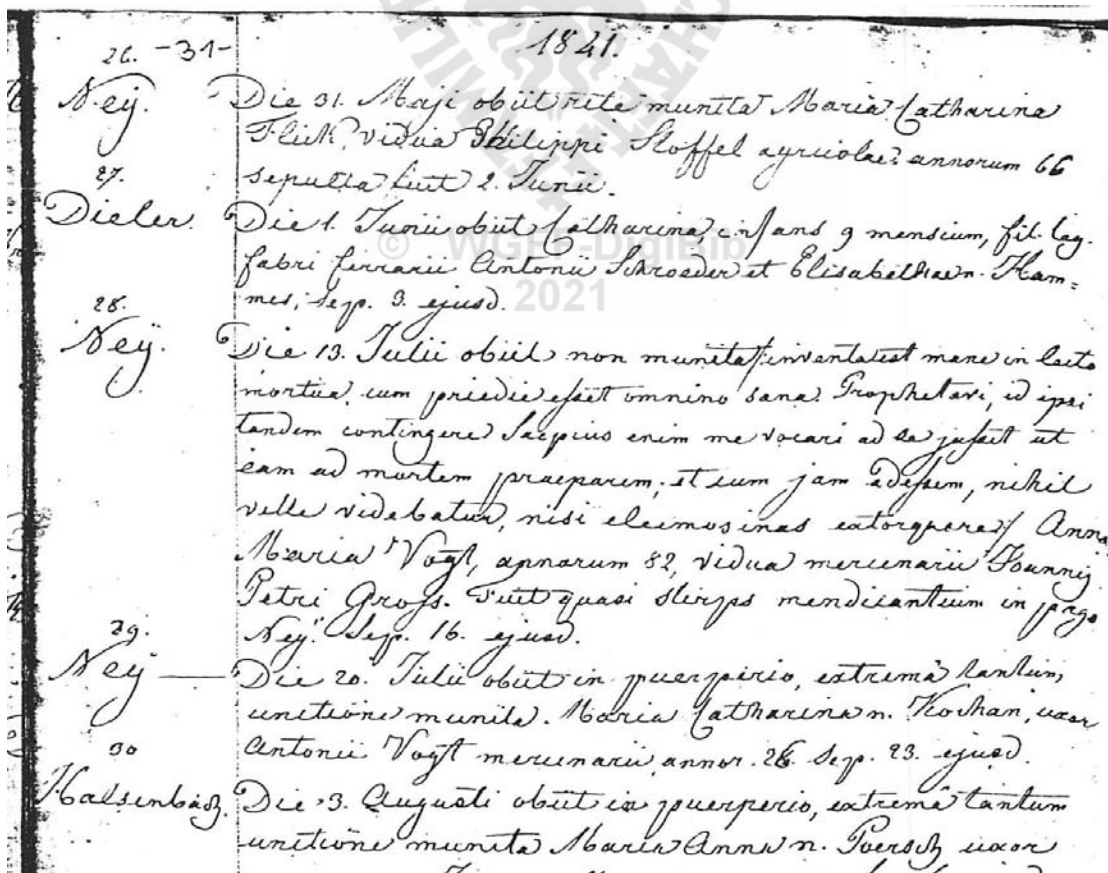 -31-
1841.
26.
Neÿ.
Die 31. Maji obiit rite munita Maria Catharina
Flick, vidua Philippi Stoffel agricolae annorum 66
sepulta fuit 2. Junii.
27.
Dieler.
Die 1. Junii obiit Catharina, infans 9 mensium, fil. leg.
fabri ferrarii Antonii Schroeder et Elisabethae n. Ham=
mes, sep. 3. ejusd.
28.
Neÿ.
Die 13. Julii obiit non munita /:inventa est mane in lecto
mortua, cum pridie esset omnino sana. Prophetavi, id ipsi
tandem contingere. Saepius enim me vocari ad se jussit ut
eam ad mortem praeparem, et cum jam adessem, nihil
velle videbatur, nisi eleemosinas extorquere:/ Anna
Maria Vogt, annorum 82, vidua mercenarii Joannis
Petri Gross. Fuit quasi stirps mendicantium in pago
Neÿ. Sep. 16. ejusd.
29.
Neÿ —
Die 20. Julii obiit in puerpirio, extremâ tantum
unctione munita. Maria Catharina n. Kochan, uxor
Antonii Vogt mercenarii, annor. 26. Sep. 23. ejusd.
30
Halsenbach.
Die 3. Augusti obiit in puerperio, extremâ tantum
unctione munita Maria Anna n. Poersch uxor
© WGfF-DigiBib
2021